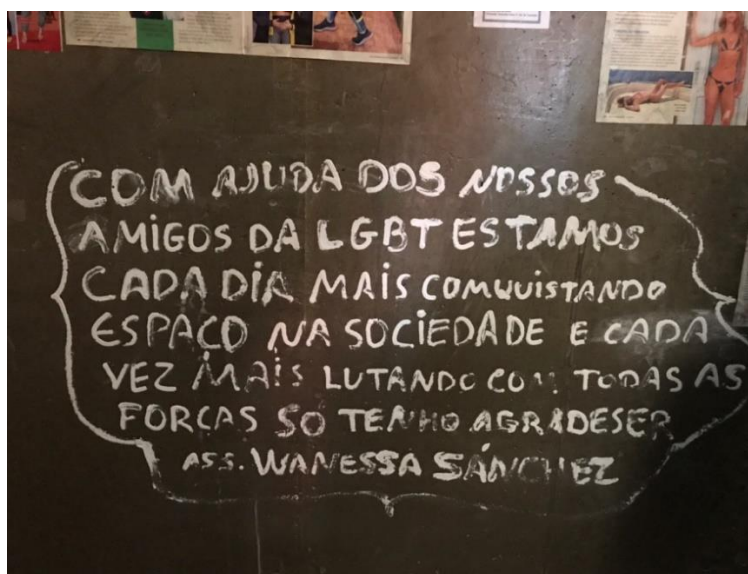 COM AJUDA DOS NOSSOS
AMIGOS DA LGBT ESTAMOS
CADA DIA MAIS COMQUISTANDO
ESPAÇO NA SOCIEDADE E CADA
VEZ MAIS LUTANDO COM TODAS AS
FORCAS SO TENHO AGRADESER
ASS. WANESSA SÁNCHEZ